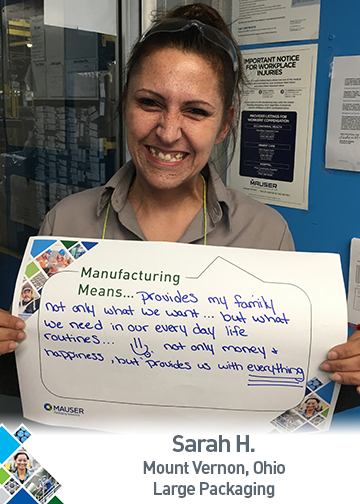 IMPORTANT NOTICE
FOR WORKPLACE
INJURIES
PROVIDER LISTINGS FOR
WORKERS' COMPENSATION
OCCUPATIONAL HEALTH
URGENT CARE
HOSPITAL
MAUSER
Manufacturing
Means... provides my family
not only what we want... but what
we need in our every day life
routines... not only money &
happiness, but provides us with everything
MAUSER
Packaging Solutions
Sarah H.
Mount Vernon, Ohio
Large Packaging